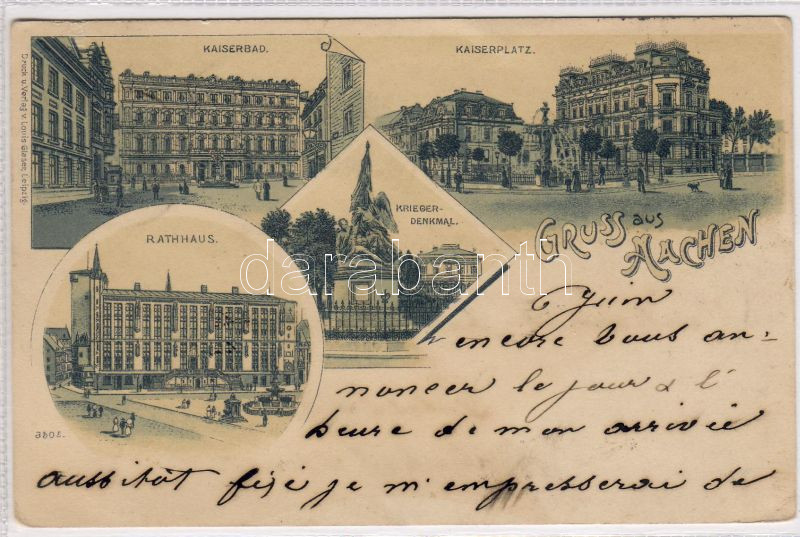 KAISERBAD.
KAISERPLATZ.
Druck u. Verlag v. Louis Glaser, Leipzig.
KRIEGER-
DENKMAL.
RATHHAUS.
GRUSS aus
AACHEN
darabanth
6 Juin
encore vous an-
noncer le jour & l'
heure de mon arrivée
aussitôt fixé je m'empresserai de
3808.